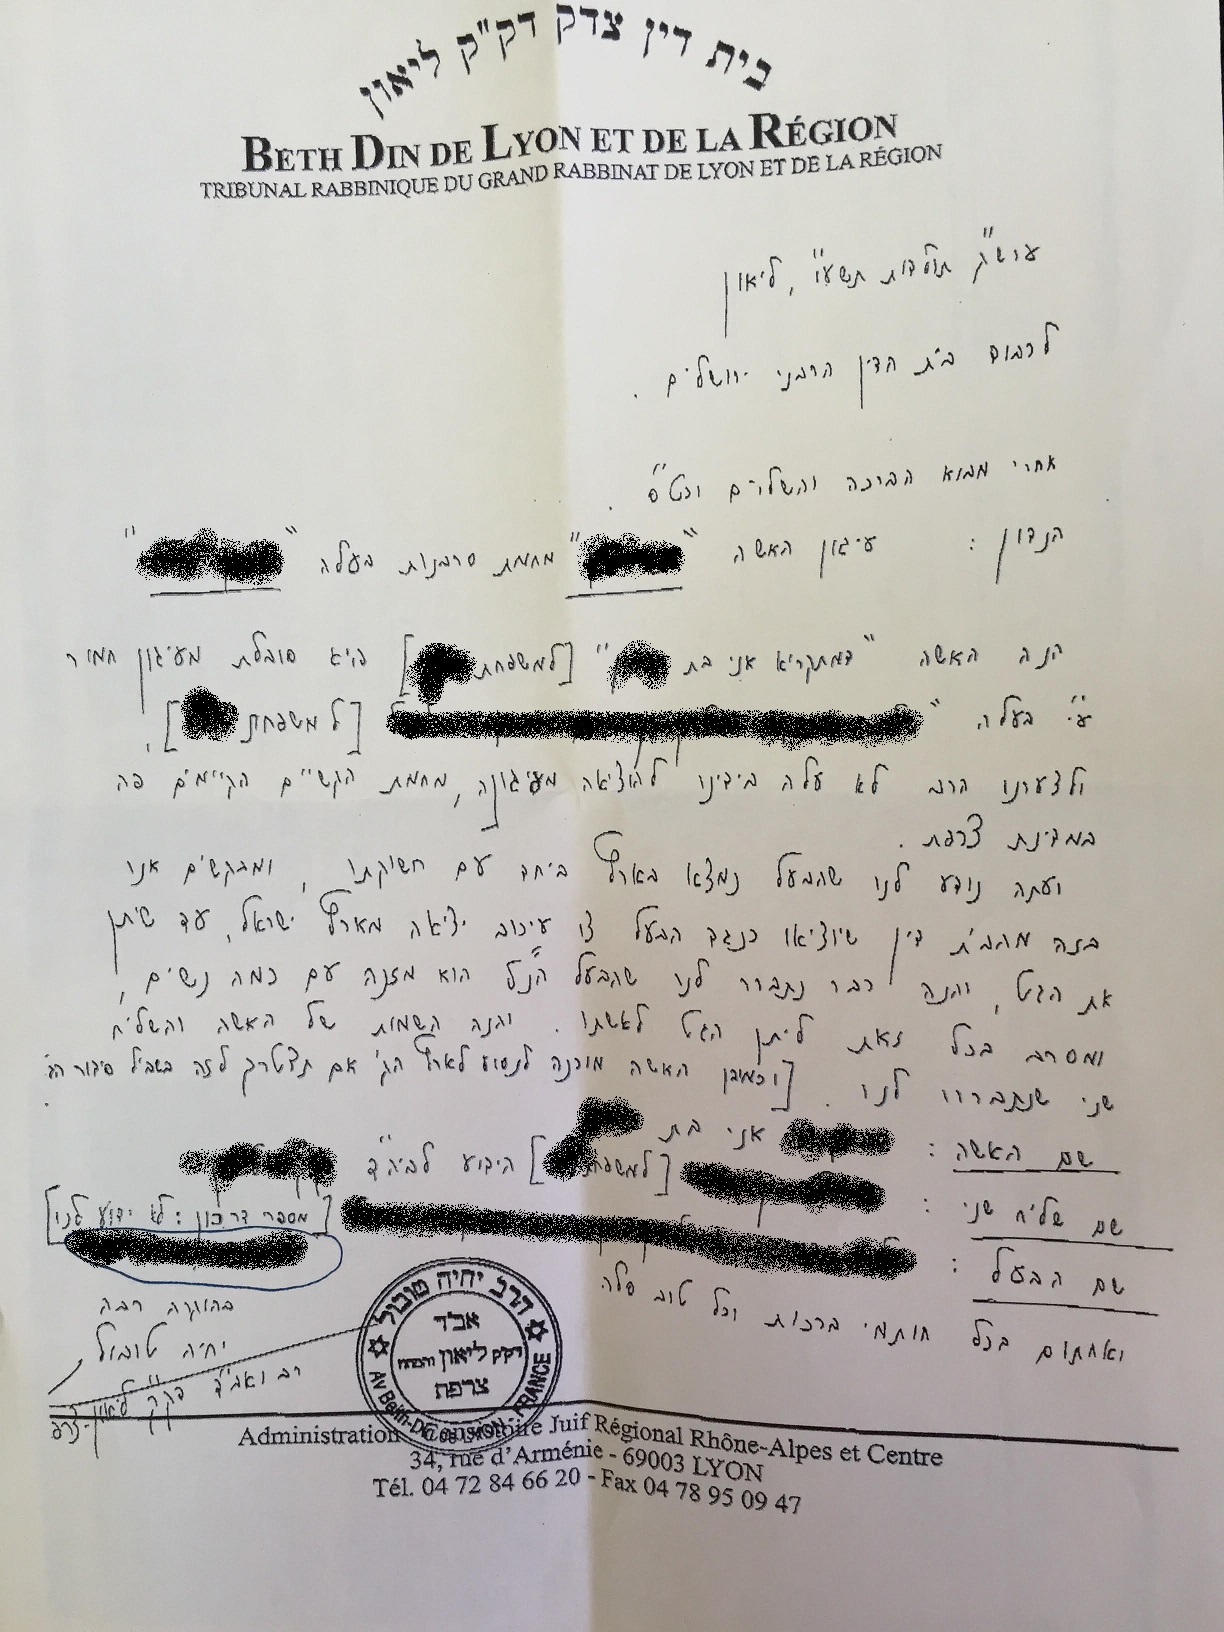 בית דין צדק דק"ק ליאון
BETH DIN DE LYON ET DE LA RÉGION
TRIBUNAL RABBINIQUE DU GRAND RABBINAT DE LYON ET DE LA RÉGION
ערש"ק תולדות תשע"ו, ליאון
לכבוד בית הדין הרבני ירושלים.
אחרי מבוא הברכה והשלו' וכט"ס.
הנדון: עיגון האשה " " מחמת סרבנות בעלה " "
הנה האשה "דמתקריא אני בת " [למשפחת ] היא סובלת מעיגון חמור
ע"י בעלה, " [למשפחת ],
ולצערנו הרב לא עלה בידינו להוציאה מעיגונה, מחמת הקשיים הקיימים פה
במדינת צרפת.
ועתה נודע לנו שהבעל נמצא בארץ ביחד עם חשיקתו, ומבקשים אנו
בזה מהבית דין שיוציאו כנגד הבעל צו עיכוב יציאה מארץ ישראל, עד שיתן
את הגט, והנה כבר נתברר לנו שהבעל הנ"ל הוא מזנה עם כמה נשים,
ומסרב בכל זאת ליתן הגט לאשתו. והנה השמות של האשה והשליח
שני שנתבררו לנו. [וכמובן האשה מוכנה לנסוע לארץ הק' אם תצטרך לזה בשביל סידור הג'
שם האשה: אני בת
שם שליח שני: [למשפחת ] הידוע לביה"ד
שם הבעל: [מספר דרכון: לא ידוע לנו]
ואחתום בכל חותמי ברכות וכל טוב סלה
בהוקרה רבה
יחיה טובול
רב ואב"ד דק"ק ליאון-צרפת
הרב יחיה טובול
אב"ד
דק"ק ליאון והגליל
צרפת
Av Beith-Din de LYON - FRANCE
Administration Consistoire Juif Régional Rhône-Alpes et Centre
34, rue d'Arménie - 69003 LYON
Tél. 04 72 84 66 20 - Fax 04 78 95 09 47